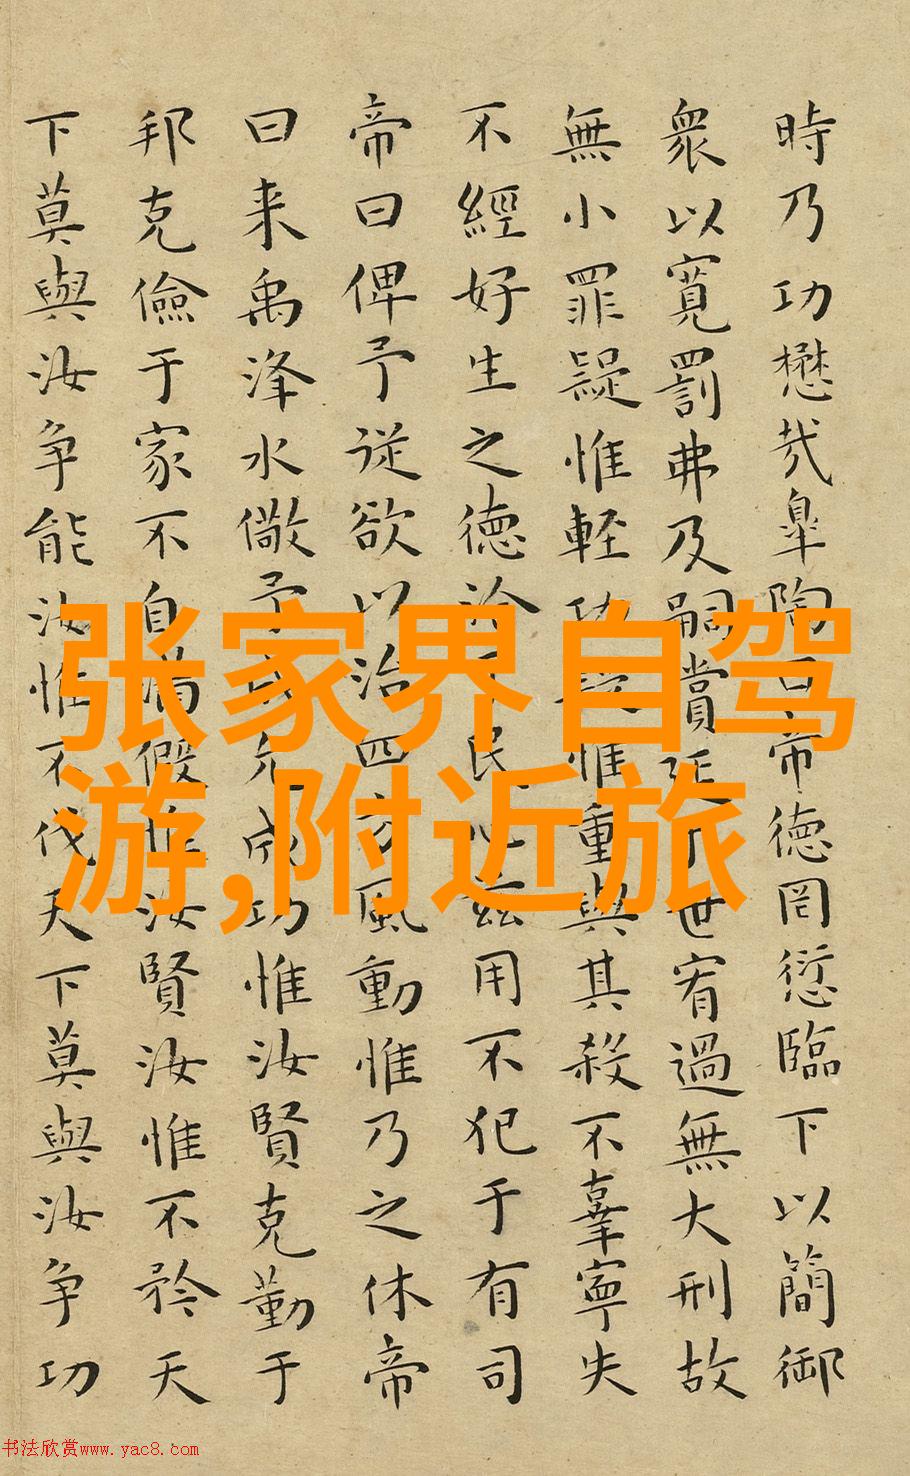 時乃功懋哉臯陶曰帝德罔愆臨下以簡御
衆以寬罰弗及嗣賞延于世宥過無大刑故
無小罪疑惟輕功疑惟重與其殺不辜寧失
不經好生之德洽于民心茲用不犯于有司
帝曰俾予從欲以治四方風動惟乃之休帝
曰来禹洚水儆予成允成功惟汝賢克勤于
邦克儉于家不自滿假惟汝賢汝惟不矜天
下莫與汝争能汝惟不伐天下莫與汝争功
张家界自驾
游,附近旅
书法欣赏www.yac8.com